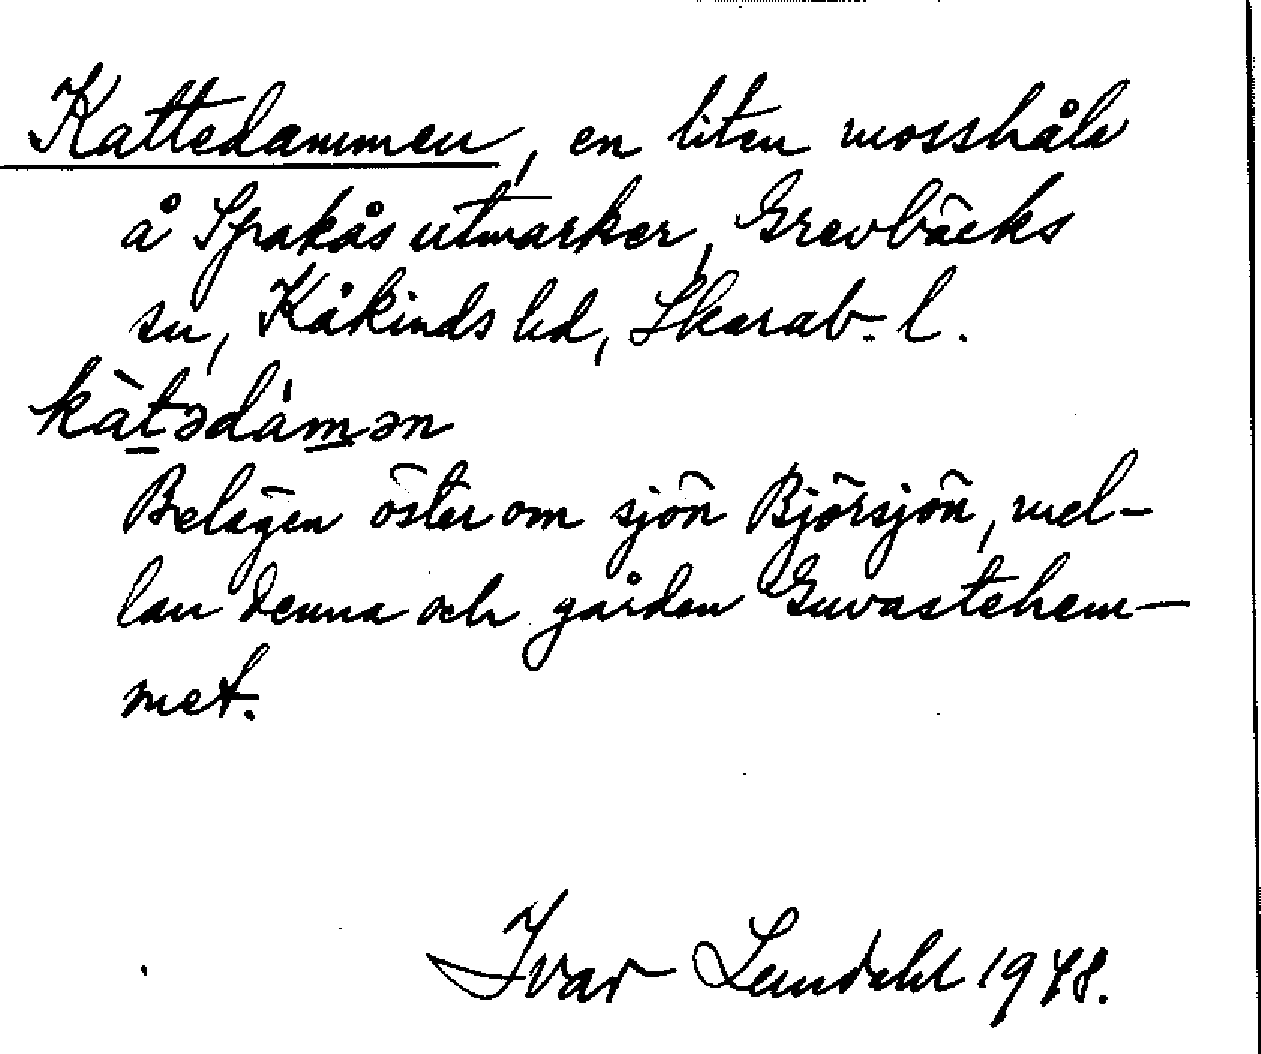 Kattedammen, en liten mosshåla
å Spakås utmarker, Grevbäcks
sn, Kåkinds hd, Skarab. l.
kàtədámən
Belägen öster om sjön Björsjön, mel-
lan denna och gården Guvastehem-
met.
Ivar Lundahl 1948.